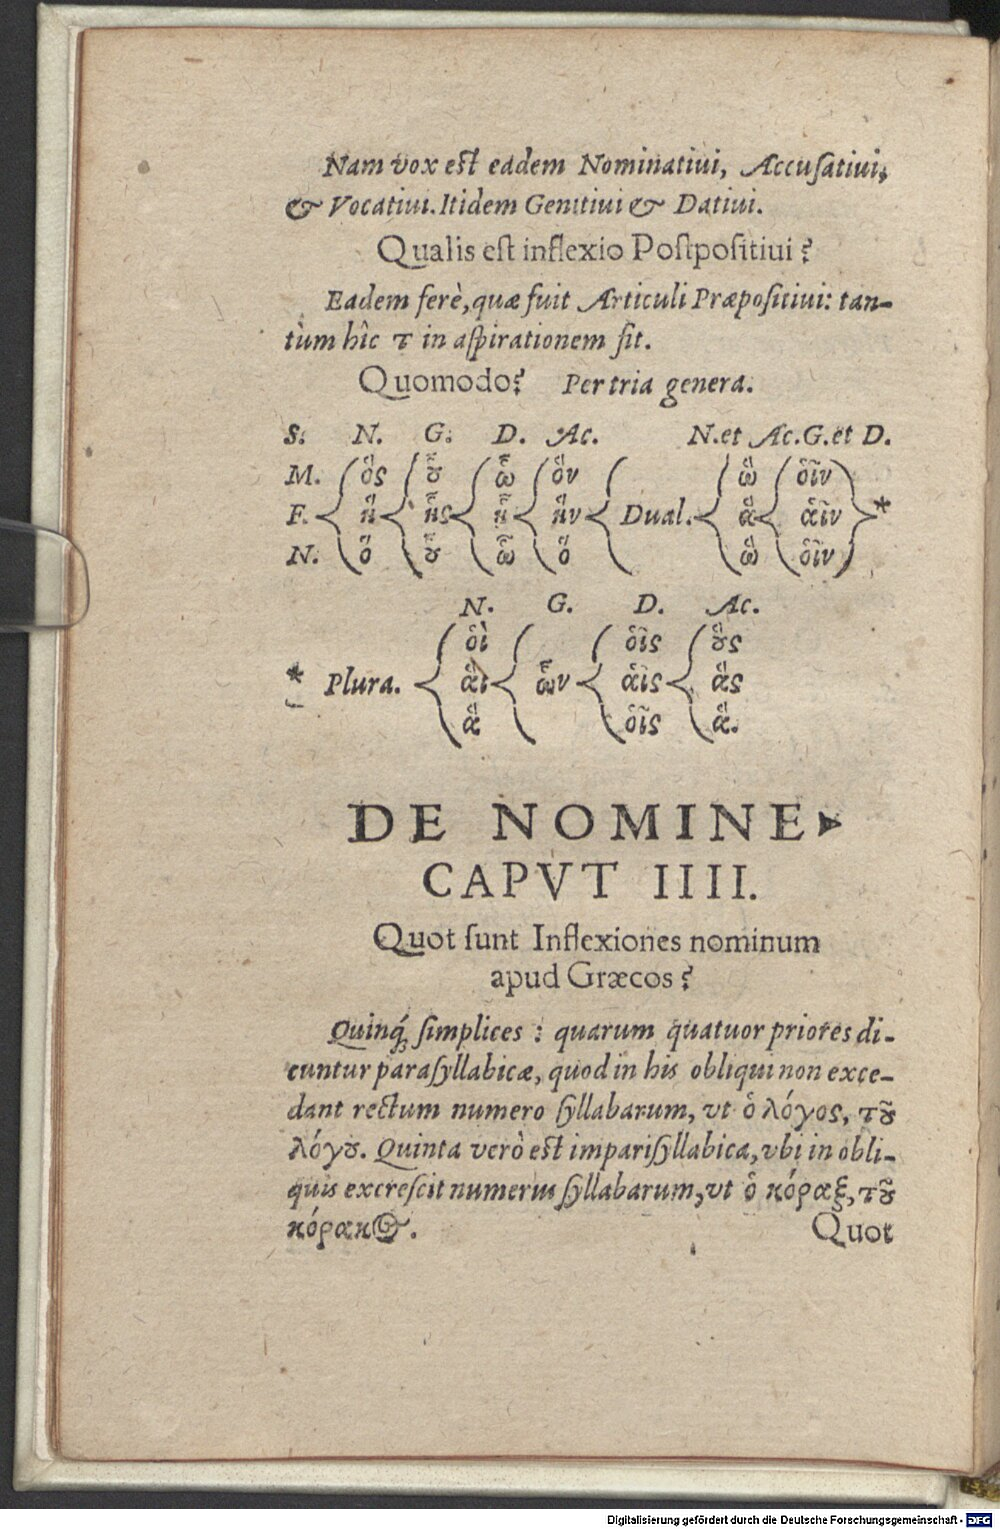 Nam vox est eadem Nominatiui, Accuſatiui,
& Vocatiui. Itidem Genitiui & Datiui.
Qualis eſt inflexio Poſtpoſitiui?
Eadem ferè, quæ fuit Articuli Præpoſitiui: tan-
tùm hîc τ in aſpirationem ſit.
Quomodo? Per tria genera.
S. N. G. D. Ac. N. et Ac. G. et D.
M. ὃς οὗ ᾧ ὃν ὣ οἷν
F. ἣ ἧς ᾗ ἣν Dual. ἃ αἷν *
N. ὃ οὗ ᾧ ὃ ὣ οἷν
N. G. D. Ac.
οἳ οἷς οὓς
* Plura. αἳ ὧν αἷς ἃς
ἃ οἷς ἃ.
DE NOMINE
CAPVT IIII.
Quot ſunt Inflexiones nominum
apud Græcos?
Quinq́; ſimplices: quarum quatuor priores di-
cuntur paraſyllabicæ, quod in his obliqui non exce-
dant rectum numero ſyllabarum, vt ὁ λόγος, τοῦ
λόγου. Quinta verò eſt impariſyllabica, vbi in obli-
quis excreſcit numerus ſyllabarum, vt ὁ κόραξ, τοῦ
κόρακος.
Quot
Digitalisierung gefördert durch die Deutsche Forschungsgemeinschaft - DFG